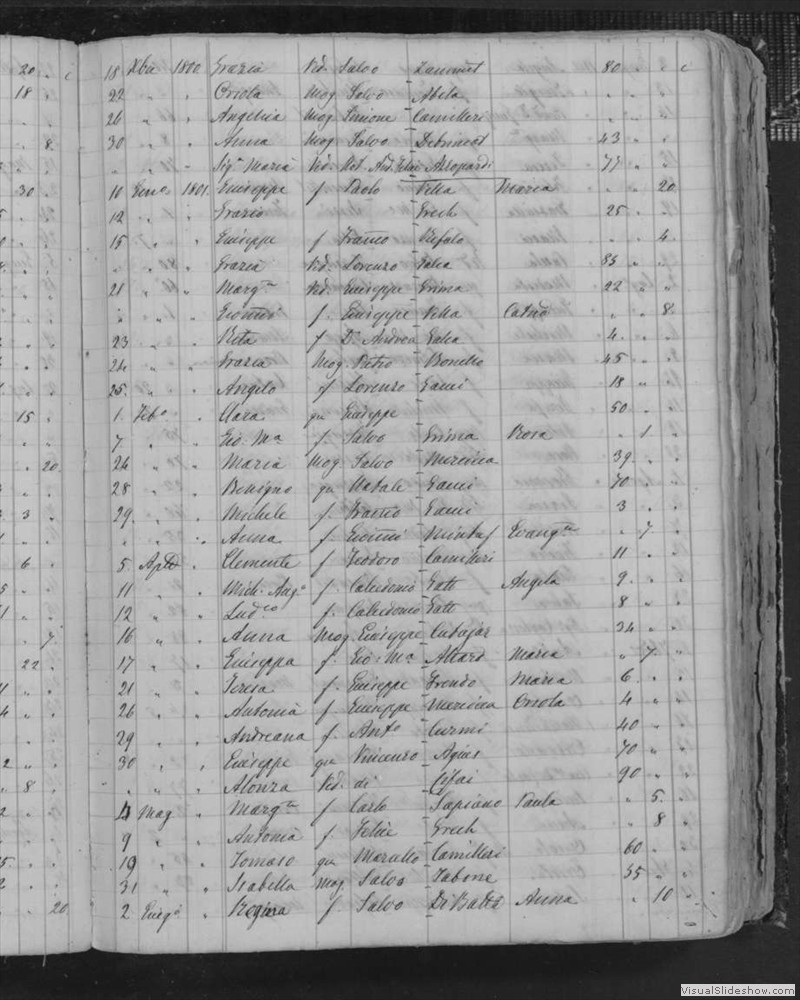 20 . c
18 . .
. 8
30
15
. . 20
3
6
7
22
8
20
18 Xbre 1800 Grazia Vid. Salvo Zammit 80 . c
22 . . Orsola Mog Salvo Abela . . .
26 . . Angelica Mog Simione Camilleri
30 . . Anna Mog Salvo 43 . .
. . - Sig.ra Maria Vid. Not. And. Felice Azzopardi 77 . .
10 Geno. 1801. Giuseppe f Paolo Vella Maria . . 20
12 . . Grazio Grech 25 . .
15 . . Giuseppe f Franco Bufalo . . 4.
. . . Grazia Vid. Lorenzo Galea 85 . .
21 . . Marg.ta Vid. Giuseppe Grima 22 . .
. . . Gioanni f. Giuseppe Vella Catna . . 8.
23 . . Beta f Dr. Andrea Galea 4. . .
24 . . Grazia Mog. Pietro Bonello 45 . .
25. . . Angelo f Lorenzo Gauci 18 . .
1. Febo . Clara qu Giuseppe 50 . .
7 . . Gio. Ma f. Salvo Grima Rosa . 1 .
24 . . Maria Mog Salvo Mercieca 39. . .
28 . . Benigno qu Natale Gauci 70 . .
29. . . Michele f. Franco Gauci 3 . .
. . . Anna f. Gioanni Evang.ta . 7 .
5. Aple . Clemente f Teodoro Camilleri 11 . .
11 . . Mich. Ango f Caledonio Gatt Angela 9. . .
12 . . Ludco f. Caledonio Gatt 8 . .
16 . . Anna Mog Giuseppe Cutajar 34 . .
17 . . Giuseppa f. Gio: Ma Attard Maria . 7. .
21 . . Teresa f. Giuseppe Frendo Maria 6. . .
26 . . Antonia f Giuseppe Mercieca Orsola 4 . .
29 . . Andreana f. Anto Curmi 40 . .
30 . . Giuseppe qu Vincenzo Agius 70 . .
. . . Alonza Vid. di 90 . .
4 Mag . Marg.ta f Carlo Sapiano Paula . 5. .
9 . . Antonia f Felice Grech . 8 .
19 . . Tomaso qu Marcello Camilleri 60 . .
31 . . Isabella Mog Salvo Tabone 35 . .
2 Giugo . Regina f. Salvo DiBatta Anna . 10 .
VisualSlideshow.com